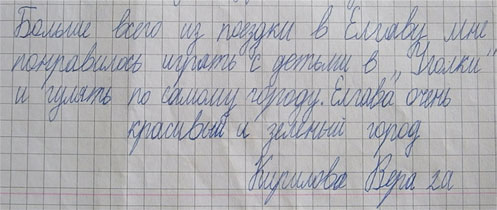 Больше всего из поездки в Елгаву мне
понравилось играть с детьми в „Уголки"
и гулять по самому городу. Елгава очень
красивый и зеленый город
Кирилова Вера 2а